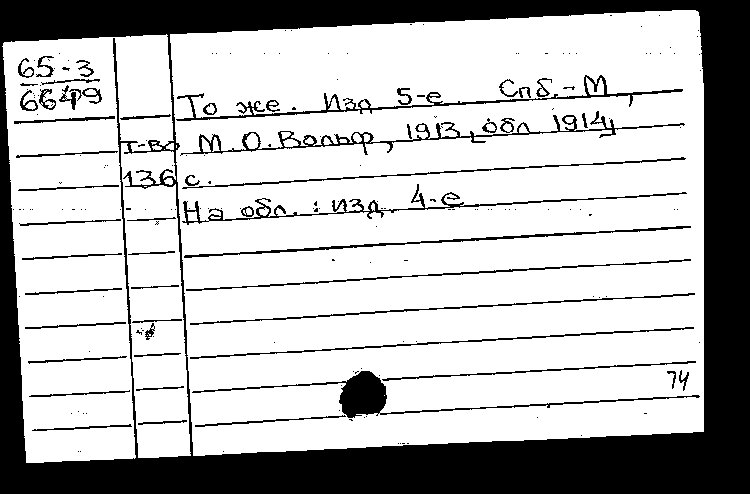 65-3
66479
То же. Изд 5-е Спб.-М,
т-во М.О.Вольф, 1913, [обл 1914]
136 с.
На обл.: изд. 4-е
74